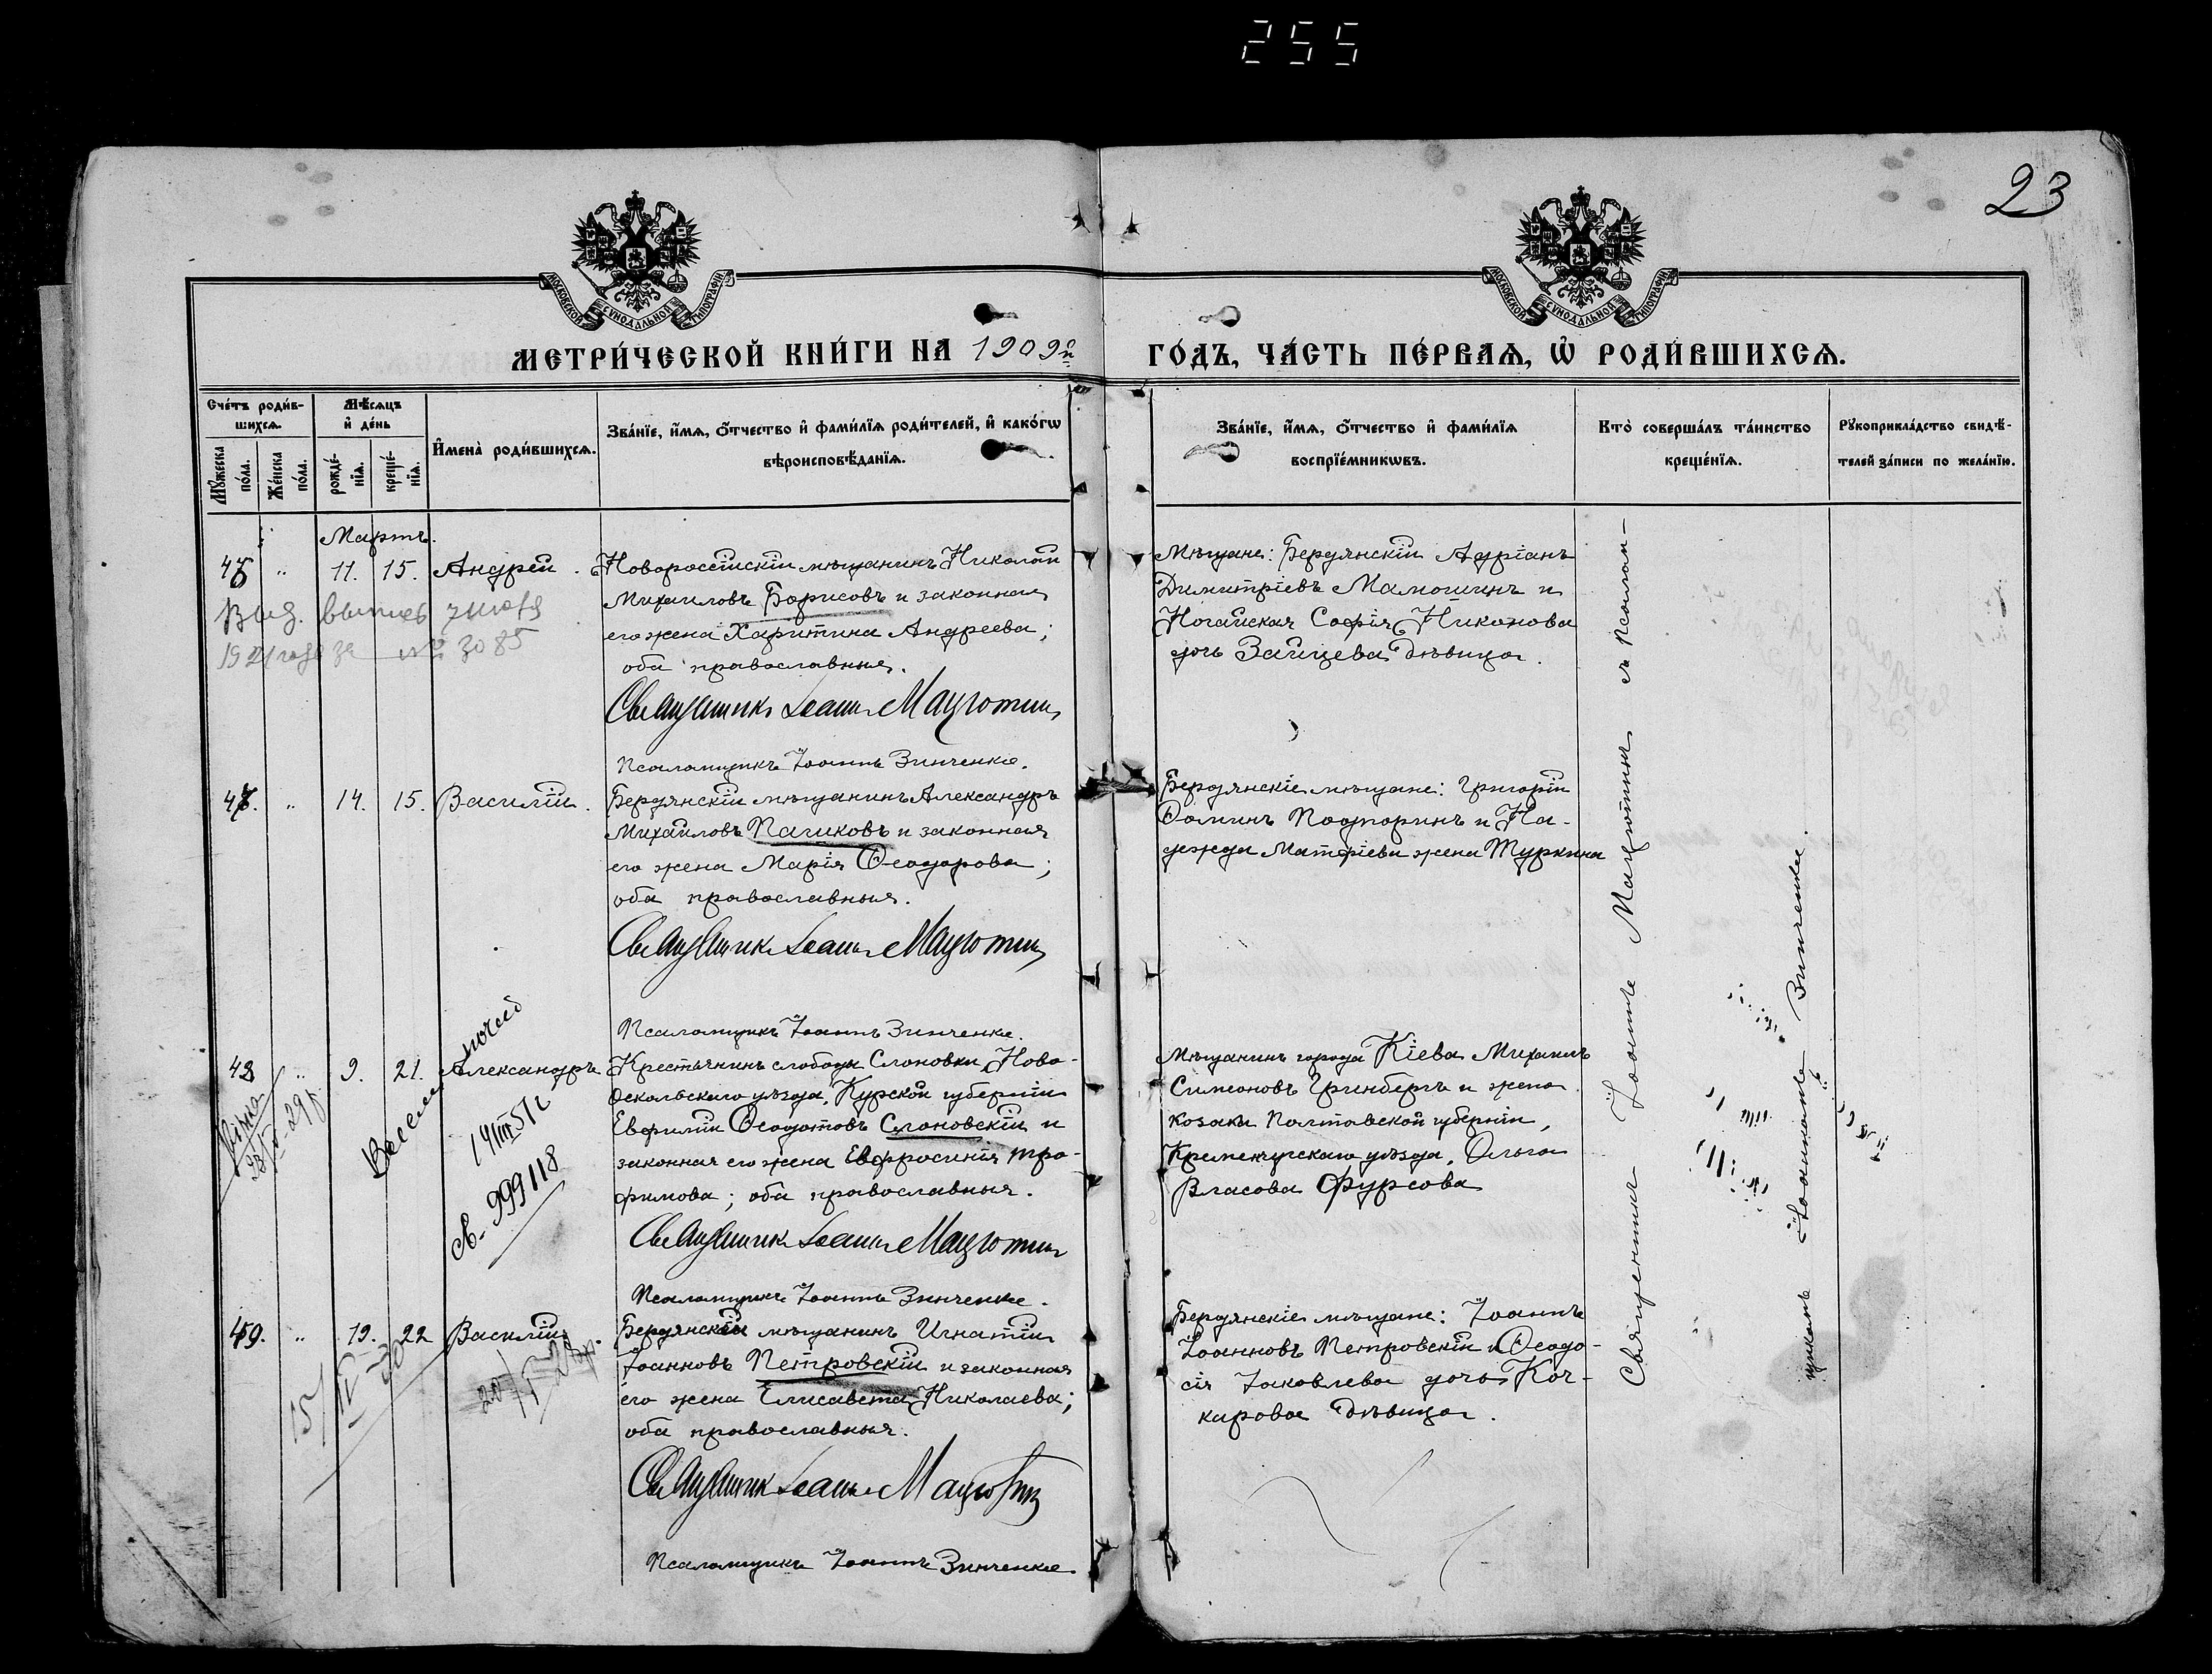 255
23
МОСКОВСКОЙ СѴНОДАЛЬНОЙ ТИПОГРАФІИ
МОСКОВСКОЙ СѴНОДАЛЬНОЙ ТИПОГРАФІИ
МЕТРИ́ЧЕСКОЙ КНИ́ГИ НА 1909й
ГО́ДЪ, ЧА́СТЬ ПЕ́РВАѦ, Ѡ҆ РОДИ́ВШИХСѦ.
Сче́тъ роди́в-
шихсѧ.
Мꙋ́жеска по́ла.
Же́нска по́ла.
Мѣ́сѧцъ
и҆ де́нь
рожде́-
нїѧ.
креще́-
нїѧ.
И҆мена̀ роди́вшихсѧ.
Зва́нїе, и҆́мѧ, ѻ҆́тчество и҆ фами́лїѧ роди́телей, и҆ како́гѡ
вѣроисповѣ́данїѧ.
Зва́нїе, и҆́мѧ, ѻ҆́тчество и҆ фами́лїѧ
воспрїе́мникѡвъ.
Кто̀ соверша́лъ та́инство
креще́нїѧ.
Рꙋкоприкла́дство свидѣ́-
телей за́писи по жела́нїю.
Мартъ.
46 " 11. 15. Андрей.
Новороссійскій мѣщанинъ Николай
Михаиловъ Борисовъ и законная
его жена Харитина Андреева;
оба православныя.
Священникъ Іоаннъ Мацютинъ
Псаломщикъ Іоаннъ Зинченко.
Мѣщане: Бердянскій Адріанъ
Димитріевъ Мамошинъ и
Ногайская Софія Никонова
дочь Зайцева дѣвица.
Выд. выпись
1921 года за № 3085
47. " 14. 15. Василій.
Бердянскій мѣщанинъ Александръ
Михайловъ Пашковъ и законная
его жена Марія Ѳеодорова;
оба православныя.
Священникъ Іоаннъ Мацютинъ
Псаломщикъ Іоаннъ Зинченко.
Бердянскіе мѣщане: Григорій
Ѳоминъ Подторинъ и На-
дежда Матфіева жена Туркина
48 " 9. 21. Александръ
Крестьянинъ слободы Слоновки, Ново-
оскольскаго уѣзда, Курской губерніи
Евфилій Ѳеодотовъ Слоновскій и
законная его жена Евфросинія Тро-
фимова; оба православныя.
Священникъ Іоаннъ Мацютинъ
Псаломщикъ Іоаннъ Зинченко.
Мѣщанинъ города Кіева Михаилъ
Симеоновъ Гринбергъ и жена
козака Полтавской губерніи,
Кременчугскаго уѣзда, Ольга
Власова Фурсова
14/III 51 г
св. 999118
49. " 19. 22 Василій.
Бердянскій мѣщанинъ Игнатій
Іоанновъ Петровскій и законная
его жена Елисавета Николаева;
оба православныя.
Священникъ Іоаннъ Мацютинъ
Псаломщикъ Іоаннъ Зинченко.
Бердянскіе мѣщане: Іоаннъ
Іоанновъ Петровскій и Ѳеодо-
сія Іаковлева дочь Коч-
карова дѣвица.
15/IV-30
Священникъ Іоаннъ Мацютинъ съ псалом-
щикомъ Іоанномъ Зинченко.